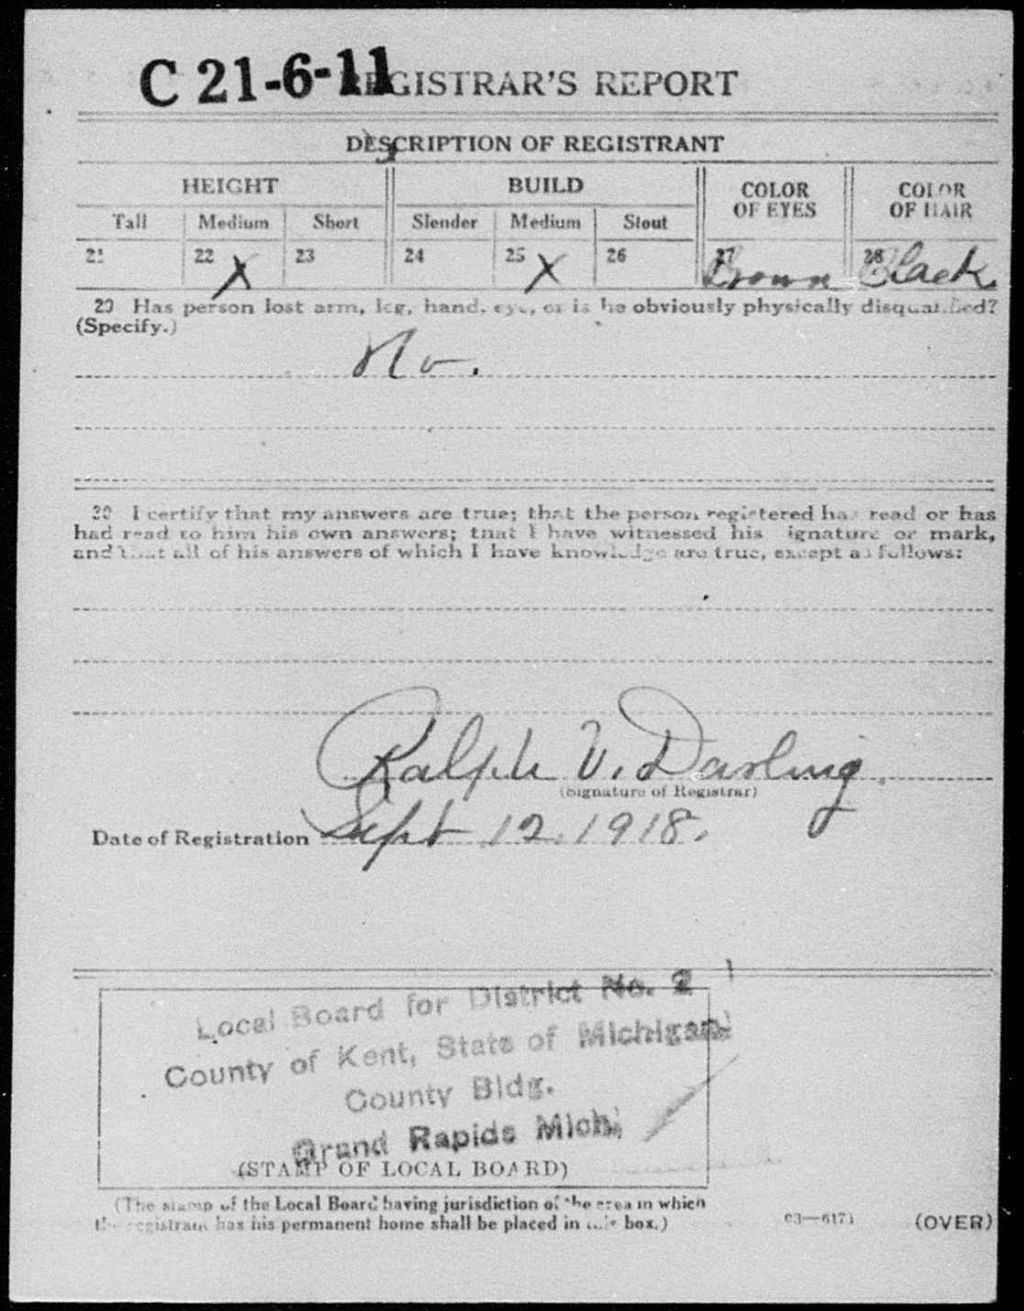 C 21-6-11 REGISTRAR'S REPORT
DESCRIPTION OF REGISTRANT
HEIGHT BUILD COLOR OF EYES COLOR OF HAIR
Tall Medium Short Slender Medium Stout
21 22 X 23 24 25 X 26 27 Brown 28 Black.
29 Has person lost arm, leg, hand, eye, or is he obviously physically disqualified?
(Specify.)
No.
30 I certify that my answers are true; that the person registered has read or has
had read to him his own answers; that I have witnessed his signature or mark,
and that all of his answers of which I have knowledge are true, except as follows:
Ralph V. Darling.
(Signature of Registrar)
Date of Registration Sept 12. 1918.
Local Board for District No. 2
County of Kent, State of Michigan
County Bldg.
Grand Rapids Mich.
(STAMP OF LOCAL BOARD)
(The stamp of the Local Board having jurisdiction of the area in which
the registrant has his permanent home shall be placed in this box.)
03—6171 (OVER)